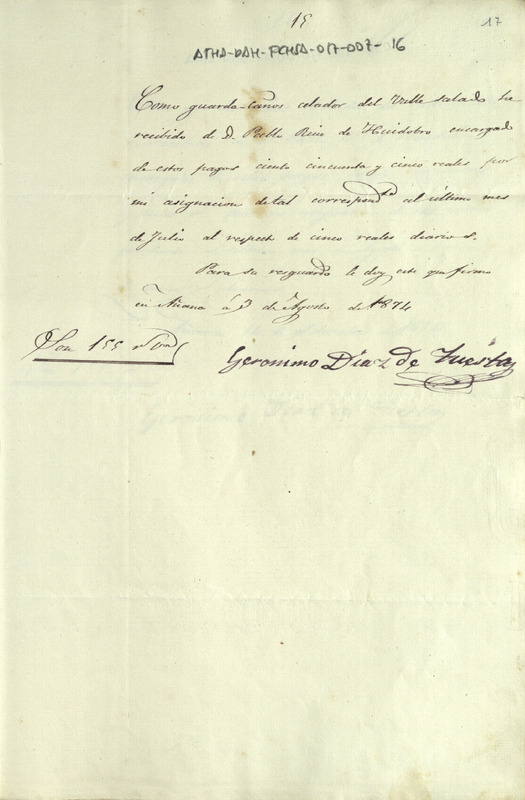 15
17
ATHA-DAH-FCHSA-017-007-16
Como guarda-caños celador del Valle salado he
recibido de D. Pablo Ruiz de Huidobro encargado
de estos pagos ciento cincuenta y cinco reales por
mi asignacion de tal correspond.te al último mes
de Julio al respecto de cinco reales diarios.
Para su resguardo le doy este que firmo
en Añana á 3 de Agosto de 1874
Son 155 r.s v.n
Geronimo Diaz de Tuesta